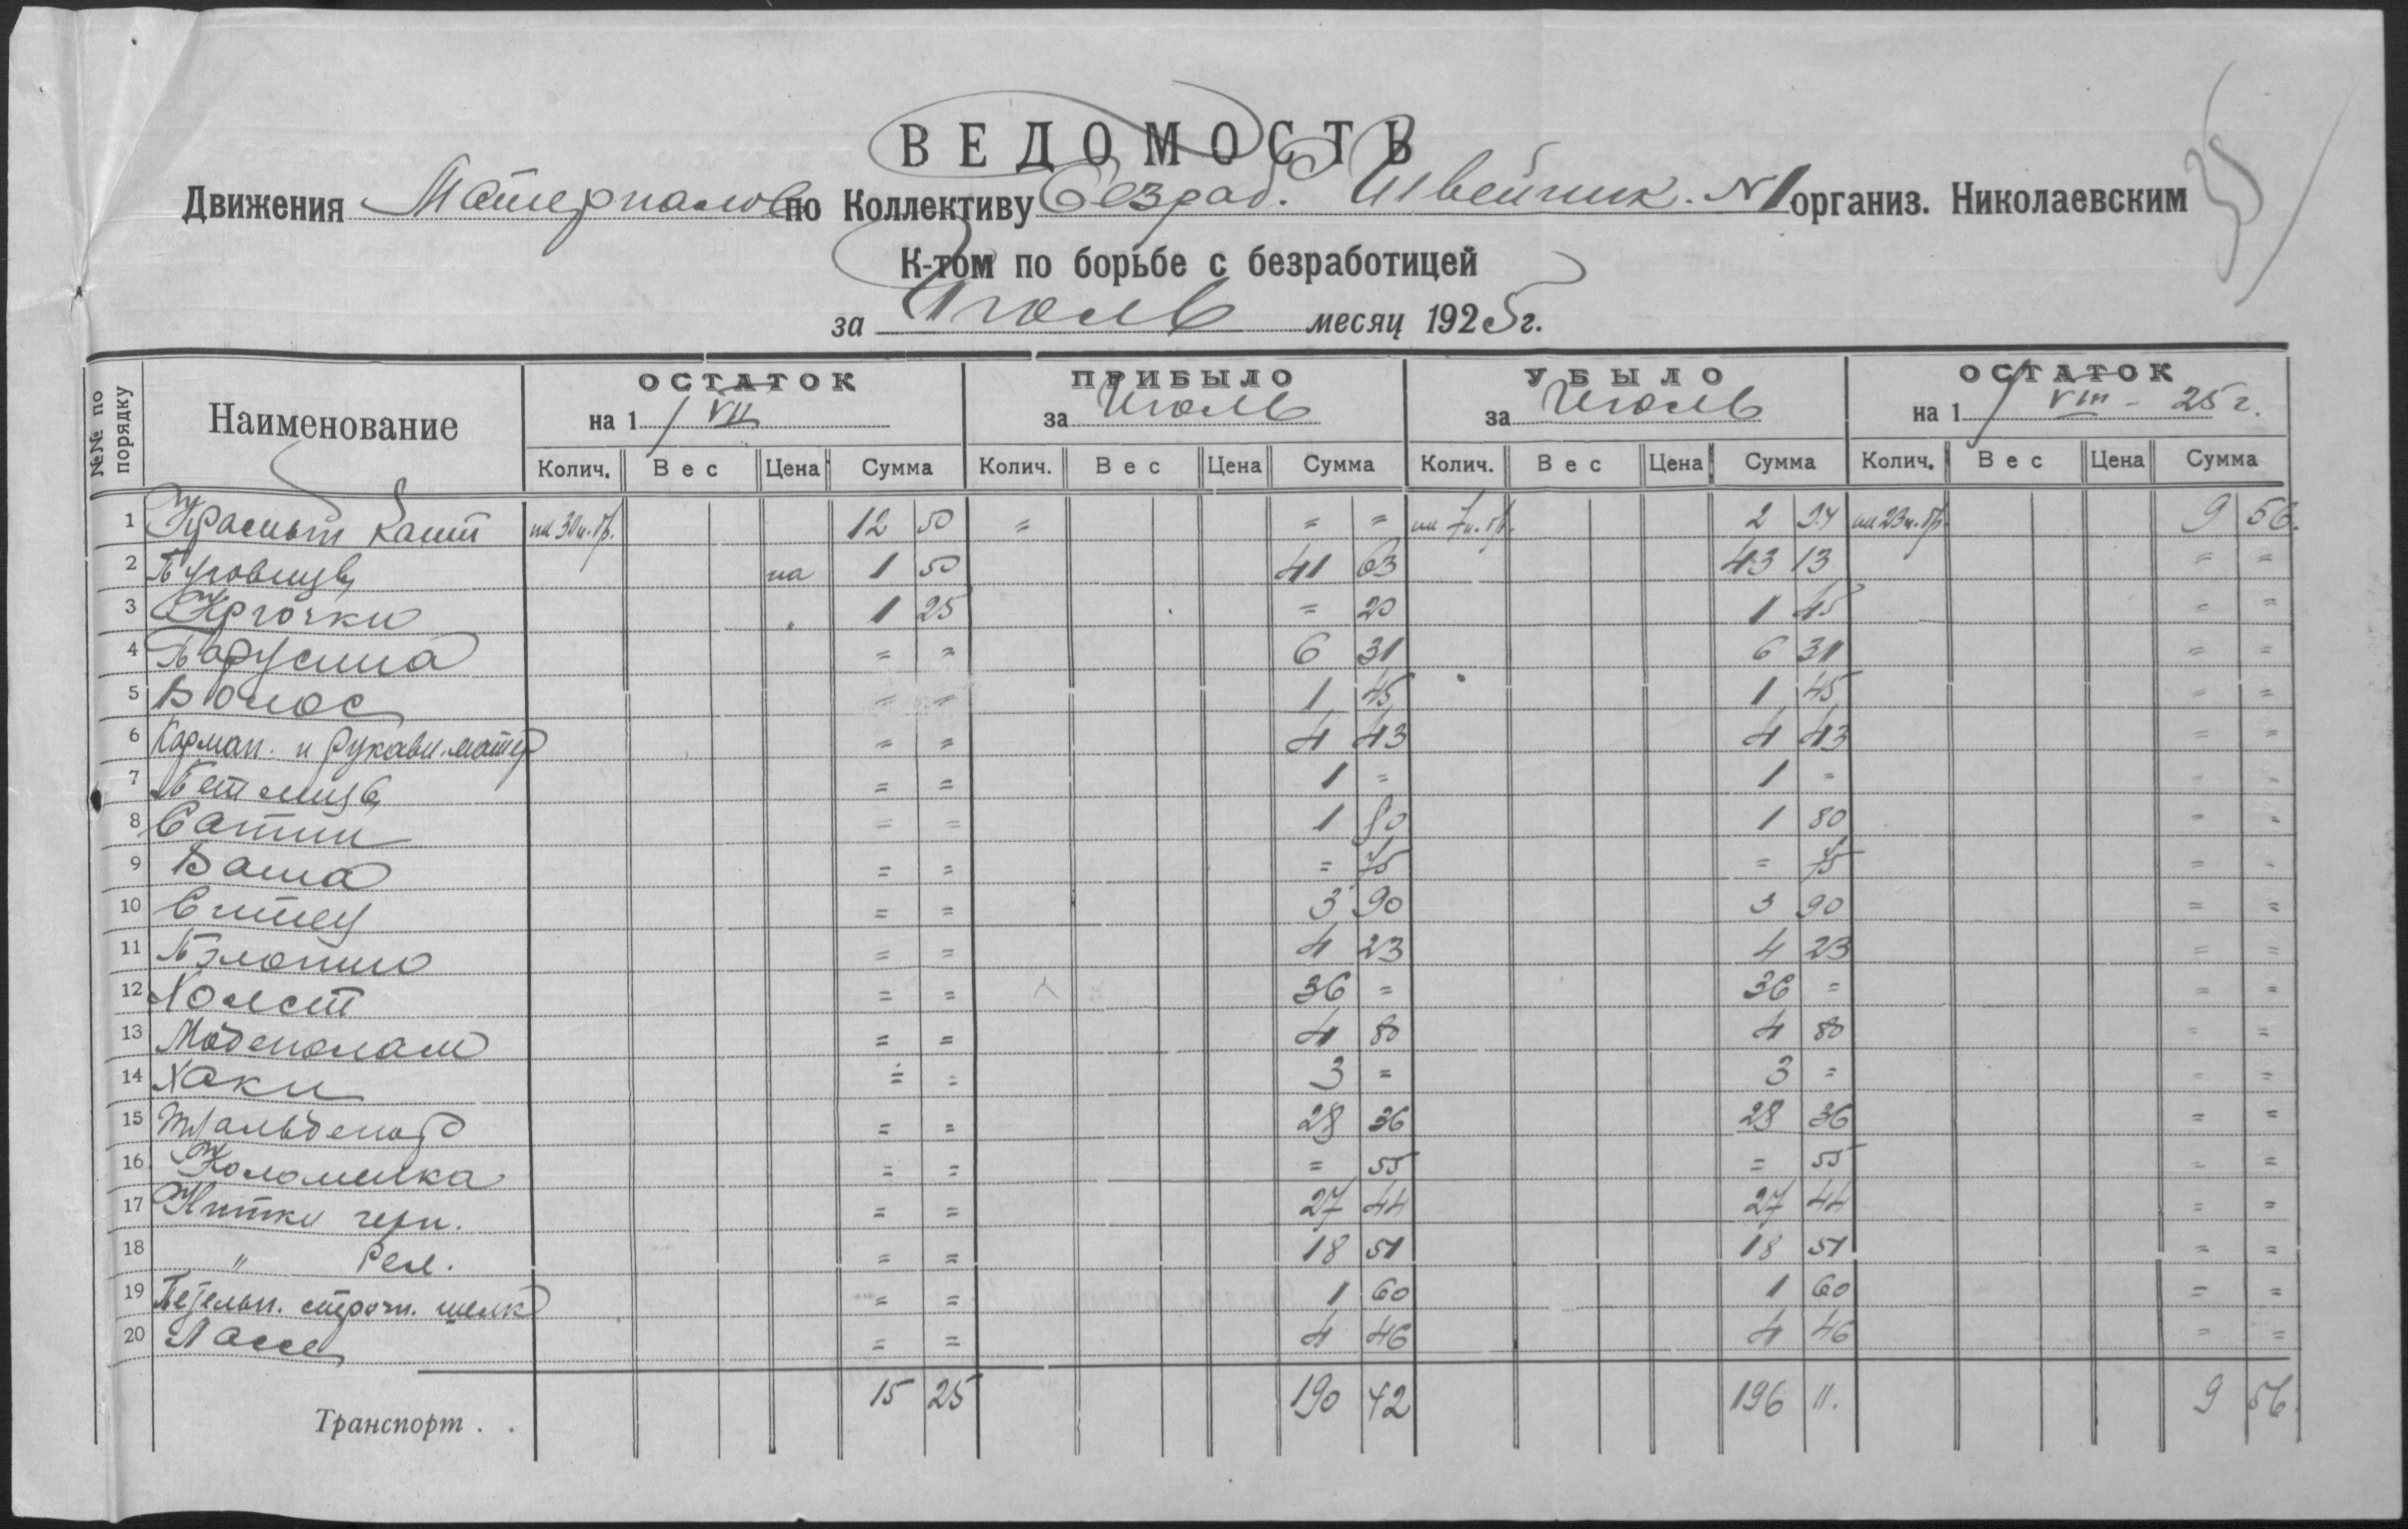 ВЕДОМОСТЬ
Движения Материалов по Коллективу Безраб. Швейник. №1 организ. Николаевским
К-том по борьбе с безработицей
за Июль месяц 1925 г.
№№ по порядку Наименование ОСТАТОК на 1/VII ПРИБЫЛО за Июль УБЫЛО за Июль ОСТАТОК на 1/VIII - 25 г.
Колич. Вес Цена Сумма Колич. Вес Цена Сумма Колич. Вес Цена Сумма Колич. Вес Цена Сумма
1 Красный Кант 12 50 = = = 2 94 9 56.
2 Пуговицы на 1 50 41 63 43 13 = =
3 Крючки 1 25 = 20 1 45 = =
4 Парусина = = 6 31 6 31 = =
5 Волос = = 1 45 1 45 = =
6 Карман. и рукавн. матер = = 4 43 4 43 = =
7 Петлицы = = 1 = 1 = = =
8 Сатин = = 1 80 1 80 = =
9 Вата = = = 75 = 75 = =
10 Ситец = = 3 90 3 90 = =
11 Полотно = = 4 23 4 23 = =
12 Холст = = 36 = 36 = = =
13 Мадеполам = = 4 80 4 80 = =
14 Хаки = = 3 = 3 = = =
15 = = 28 36 28 36 = =
16 Коломенка = = = 55 = 55 = =
17 Нитки черн. = = 27 44 27 44 = =
18 " = = 18 51 18 51 = =
19 Петельн. строчн. шелк = = 1 60 1 60 = =
20 = = 4 46 4 46 = =
Транспорт . . 15 25 190 42 196 11. 9 56.